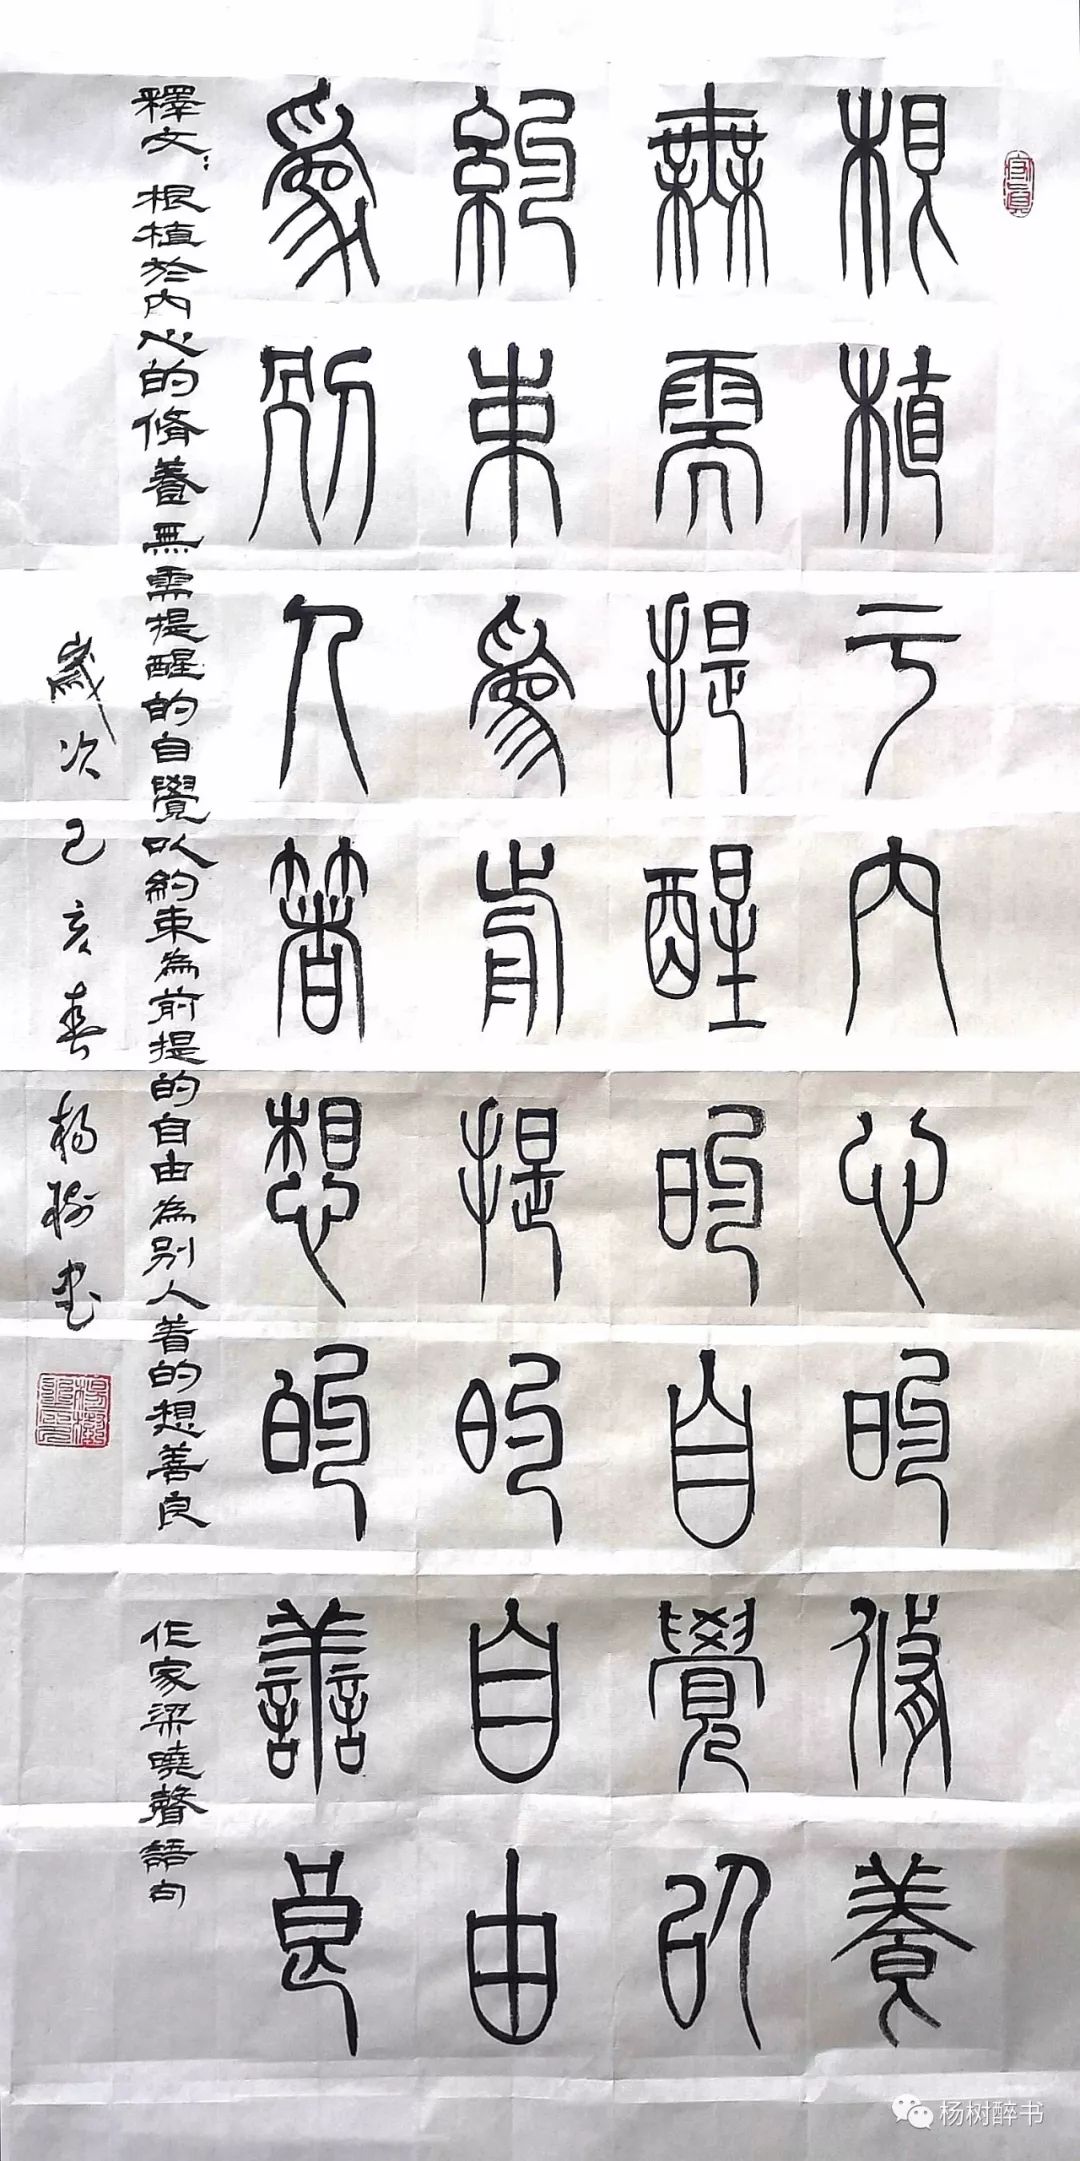 根植于内心的修養
無需提醒的自覺以
約束為前提的自由
為别人箸想的善良
釋文：根植於内心的脩養無需提醒的自覺以約束為前提的自由為别人着的想善良 作家梁曉聲語句
歲次己亥春楊樹書
杨树醉书